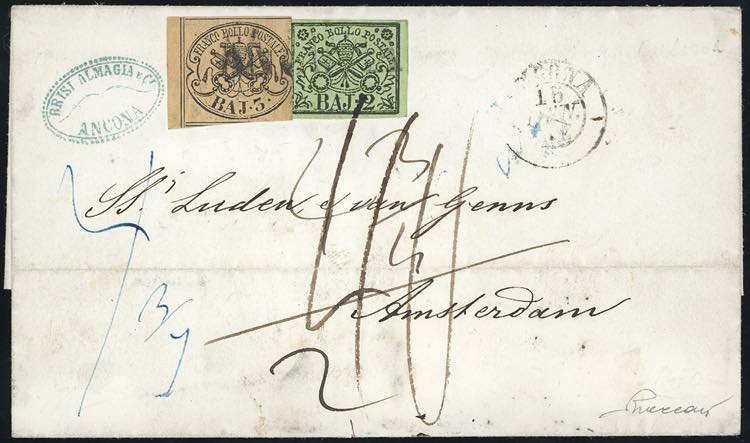 BRISI ALMAGIA e Co
ANCONA
FRANCO BOLLO POSTALE
BAJ:3:
FRANCO BOLLO POSTALE
BAJ:2
ANCONA
15
SSri Luden e van Genns
Amsterdam